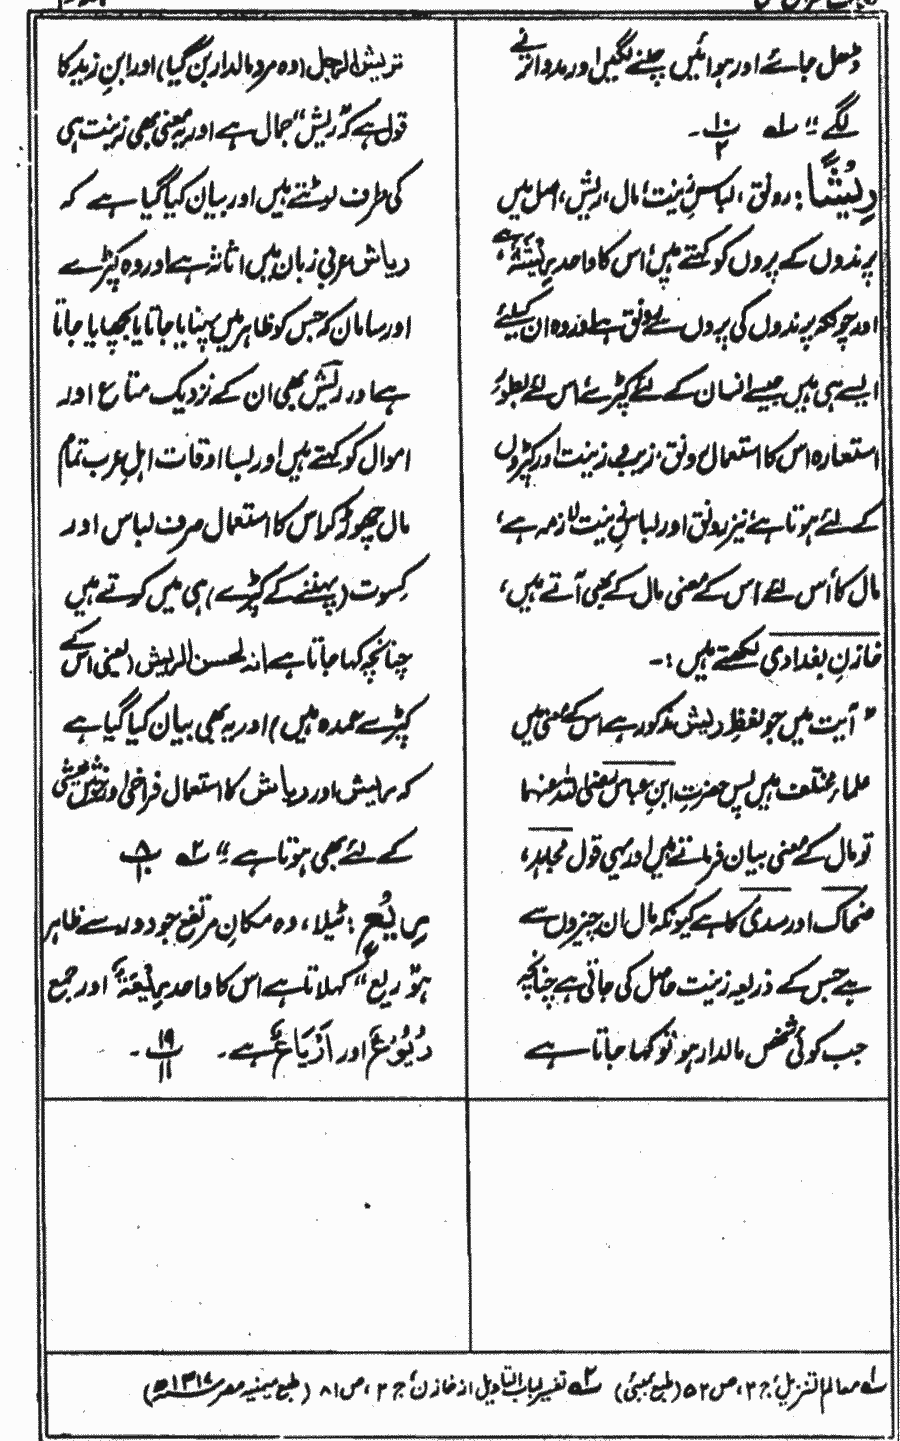 ڈھل جائے اور ہوائیں چلنے لگیں اور مدو اترنے
لگے" لہ ۱۰/۲ ۔
رِیْشًا: رونق، لباسِ زینت، مال، ریش، اصل میں
پرندوں کے پروں کو کہتے ہیں، اس کا واحد رِیْشَۃٌ ہے،
اور چونکہ پرندوں کی پروں سے رونق ہے اور وہ ان کیلئے
ایسے ہی ہیں جیسے انسان کے لئے کپڑے اس لئے بطور
استعارہ اس کا استعمال رونق، زیب و زینت اور کپڑوں
کے لئے ہوتا ہے، نیز رونق اور لباسِ زینت لازمہ ہے،
مال کا، اس لئے اس کے معنی مال کے بھی آتے ہیں،
خازن بغدادی لکھتے ہیں :-
" آیت میں جو لفظِ ریش مذکور ہے اس کے معنی میں
علماء مختلف ہیں پس حضرت ابن عباس رضی اللہ عنہما
تو مال کے معنی بیان فرماتے ہیں اور یہی قول مجاہد،
ضحاک اور سدی کا ہے کیونکہ مال ان چیزوں سے
ہے جس کے ذریعہ زینت حاصل کی جاتی ہے چنانچہ
جب کوئی شخص مالدار ہو تو کہا جاتا ہے
تریش الرجل (وہ مرد مالدار بن گیا) اور ابن زید کا
قول ہے کہ "ریش" جمال ہے اور یہ معنی بھی زینت ہی
کی طرف لوٹتے ہیں اور بیان کیا گیا ہے کہ
ریاش عربی زبان میں اثاثہ ہے اور وہ کپڑے
اور سامان کہ جس کو ظاہر میں پہنایا جاتا یا بچھایا جاتا
ہے اور ریش بھی ان کے نزدیک متاع اور
اموال کو کہتے ہیں اور بسا اوقات اہلِ عرب تمام
مال چھوڑ کر اس کا استعمال صرف لباس اور
کسوت (پہننے کے کپڑے) ہی میں کرتے ہیں
چنانچہ کہا جاتا ہے انہ لحسن الریش (یعنی اس کے
کپڑے عمدہ ہیں) اور یہ بھی بیان کیا گیا ہے
کہ ریش اور ریاش کا استعمال فراخی اور خوش عیشی
کے لئے بھی ہوتا ہے" ۲ہ ۸/۱۰
رِیْعٍ: ٹیلا، وہ مکان مرتفع جو دور سے ظاہر
ہو "ریع" کہلاتا ہے اس کا واحد رِیْعَۃٌ اور جمع
رُیُوْعٌ اور اَرْیَاعٌ ہے۔ ۱۹/۱۱ ۔
لہ معالم التنزیل، ج ۲، ص ۵۲ (طبع بمبئی) ۲ہ تفسیر لباب التاویل از خازن، ج ۲، ص ۸۱ (طبع میمنیہ مصر ۱۳۱۷ھ)